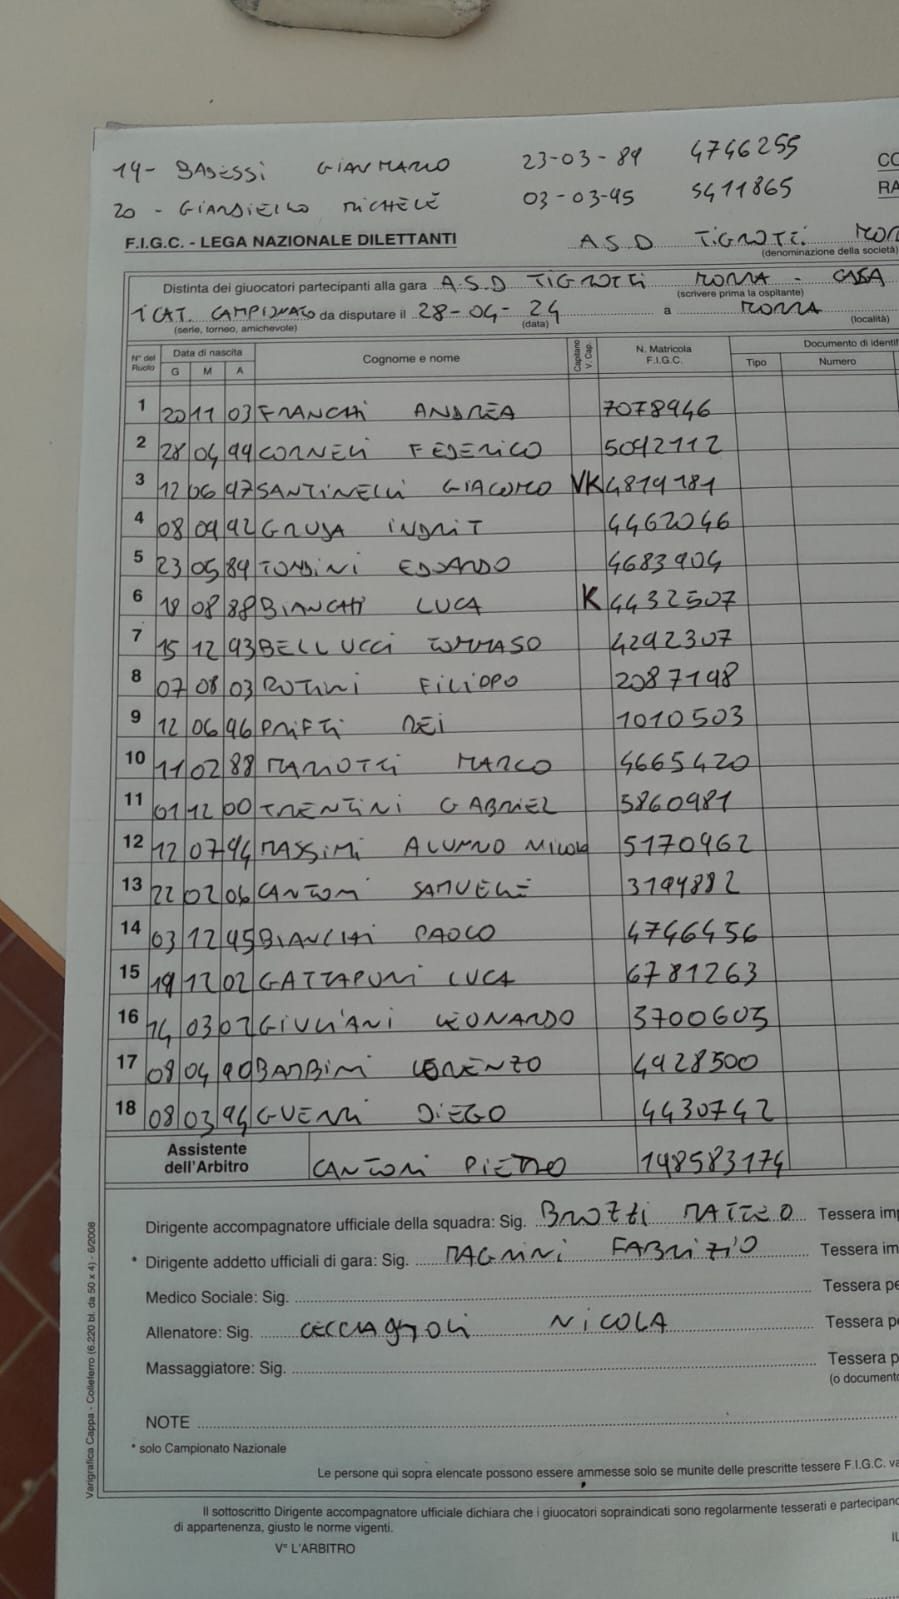 14- BADESSI GIANMARIO 23-03-89 4746255 CO
20 - GIARDIELLO MICHELE 03-03-95 5411865 RA
F.I.G.C. - LEGA NAZIONALE DILETTANTI A.S.D TIGROTTI MOR
(denominazione della società)
Distinta dei giuocatori partecipanti alla gara A.S.D TIGROTTI MORRA - CASA
(scrivere prima la ospitante)
1 CAT. CAMPIONATO da disputare il 28-04-24 a MORRA
(serie, torneo, amichevole) (data) (località)
N° del Ruolo Data di nascita G M A Cognome e nome Capitano V. Cap. N. Matricola F.I.G.C. Documento di identif
Tipo Numero
1 20 11 03 FRANCHI ANDREA 7078946
2 28 04 99 CORNELI FEDERICO 5092112
3 12 06 97 SANTINELLI GIACOMO VK 4819181
4 08 09 92 GRUJA INDRIT 4462046
5 23 05 89 TONDINI EDOARDO 4683904
6 18 08 88 BIANCHI LUCA K 4432507
7 15 12 93 BELLUCCI TOMMASO 4292307
8 07 08 03 ROTINI FILIPPO 2087198
9 12 06 96 PRIFTI REI 1010503
10 11 02 88 MARIOTTI MARCO 4665420
11 01 12 00 TRENTINI GABRIEL 5860981
12 12 07 94 MASSIMI ALUNNO NICOLA 5170962
13 22 02 06 CANTONI SAMUELE 3194882
14 03 12 95 BIANCHI PAOLO 4746456
15 19 12 02 GATTAPONI LUCA 6781263
16 14 03 02 GIULIANI LEONARDO 3700603
17 08 04 90 BAMBINI LORENZO 4928500
18 08 03 94 GUERRI DIEGO 4430742
Assistente dell'Arbitro CANTONI PIETRO 148583174
Dirigente accompagnatore ufficiale della squadra: Sig. BROZZI MATTEO Tessera imp
* Dirigente addetto ufficiali di gara: Sig. MAGRINI FABRIZIO Tessera im
Medico Sociale: Sig. Tessera pe
Allenatore: Sig. CECCAGNOLI NICOLA Tessera pe
Massaggiatore: Sig. Tessera p
(o documento
NOTE
* solo Campionato Nazionale
Le persone qui sopra elencate possono essere ammesse solo se munite delle prescritte tessere F.I.G.C. va
Il sottoscritto Dirigente accompagnatore ufficiale dichiara che i giuocatori sopraindicati sono regolarmente tesserati e partecipano
di appartenenza, giusto le norme vigenti.
V° L'ARBITRO IL
Varigrafica Cappa - Colleferro (6.220 bl. da 50 x 4) - 6/2008